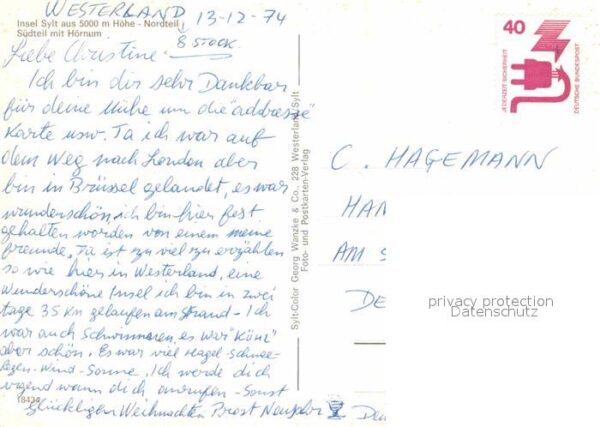 WESTERLAND 13-12-74
Insel Sylt aus 5000 m Höhe - Nordteil
Südteil mit Hörnum
8 STOCK.
Liebe Christine.
Ich bin dir sehr Dankbar
für deine Mühe um die "addresse"
Karte usw. Ta ich war auf
dem Weg nach London aber
bin in Brüssel gelandet, es war
wunderschön, ich bin hier fest
gehalten worden von einem meine
freunde. Ta ist zu viel zu erzählen
so wie hier in Westerland, eine
Wunderschöne Insel ich bin in zwei
tage 35 Km gelaufen am Strand - Ich
war auch Schwimmen, es war
aber schön. Es war viel Hagel-Schnee-
Regen-Wind-Sonne. Ich werde dich
irgend wann dich anrufen - Sonst
Glücklichen Weihnachten Prost Neujahr
18434
Sylt-Color Georg Wanzke & Co., 228 Westerland/Sylt
Foto- und Postkarten-Verlag
40
JEDERZEIT SICHERHEIT
DEUTSCHE BUNDESPOST
C. HAGEMANN
HAN
AM S
DE
privacy protection
Datenschutz